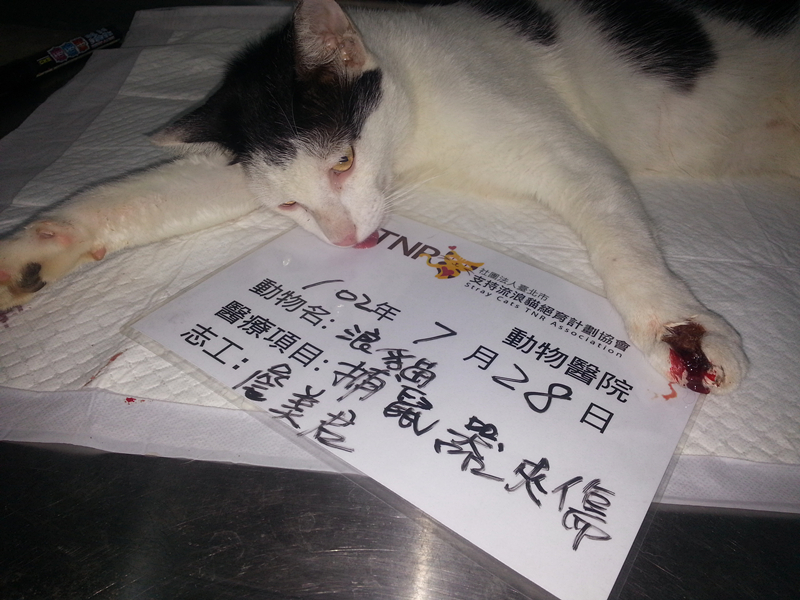 TNR
社團法人臺北市
支持流浪貓絕育計劃協會
Stray Cats TNR Association
動物醫院
102年 7月28日
動物名: 浪貓
醫療項目: 捕鼠器夾傷
志工: 美君